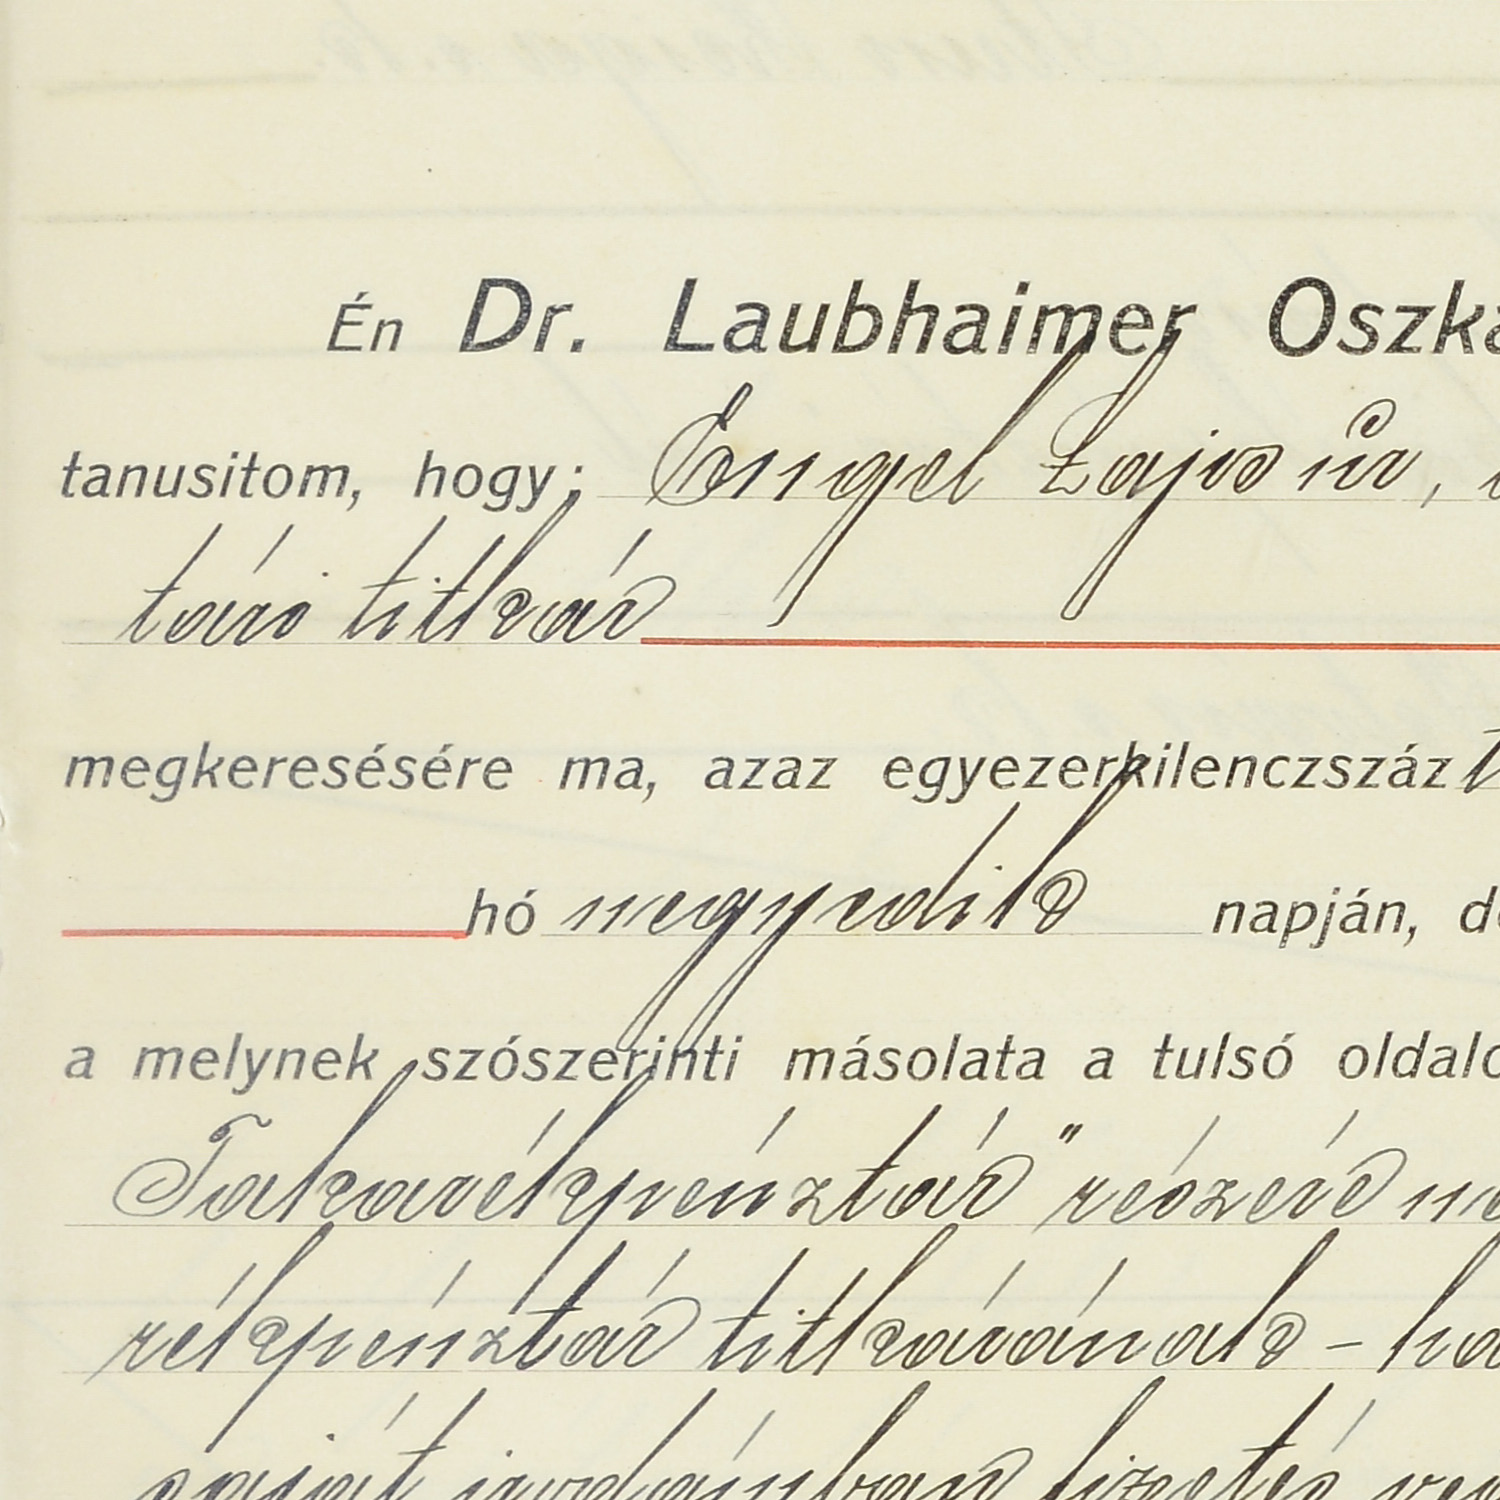 Én Dr. Laubhaimer Oszká
tanusitom, hogy; Engel Lajos úr,
tári titkár
megkeresésére ma, azaz egyezerkilenczszáz
hó negyedik napján, de
a melynek szószerinti másolata a tulsó oldalo
Takarékpénztár" részére
rékpénztár titkárának – ha
saját irodámban fizetés